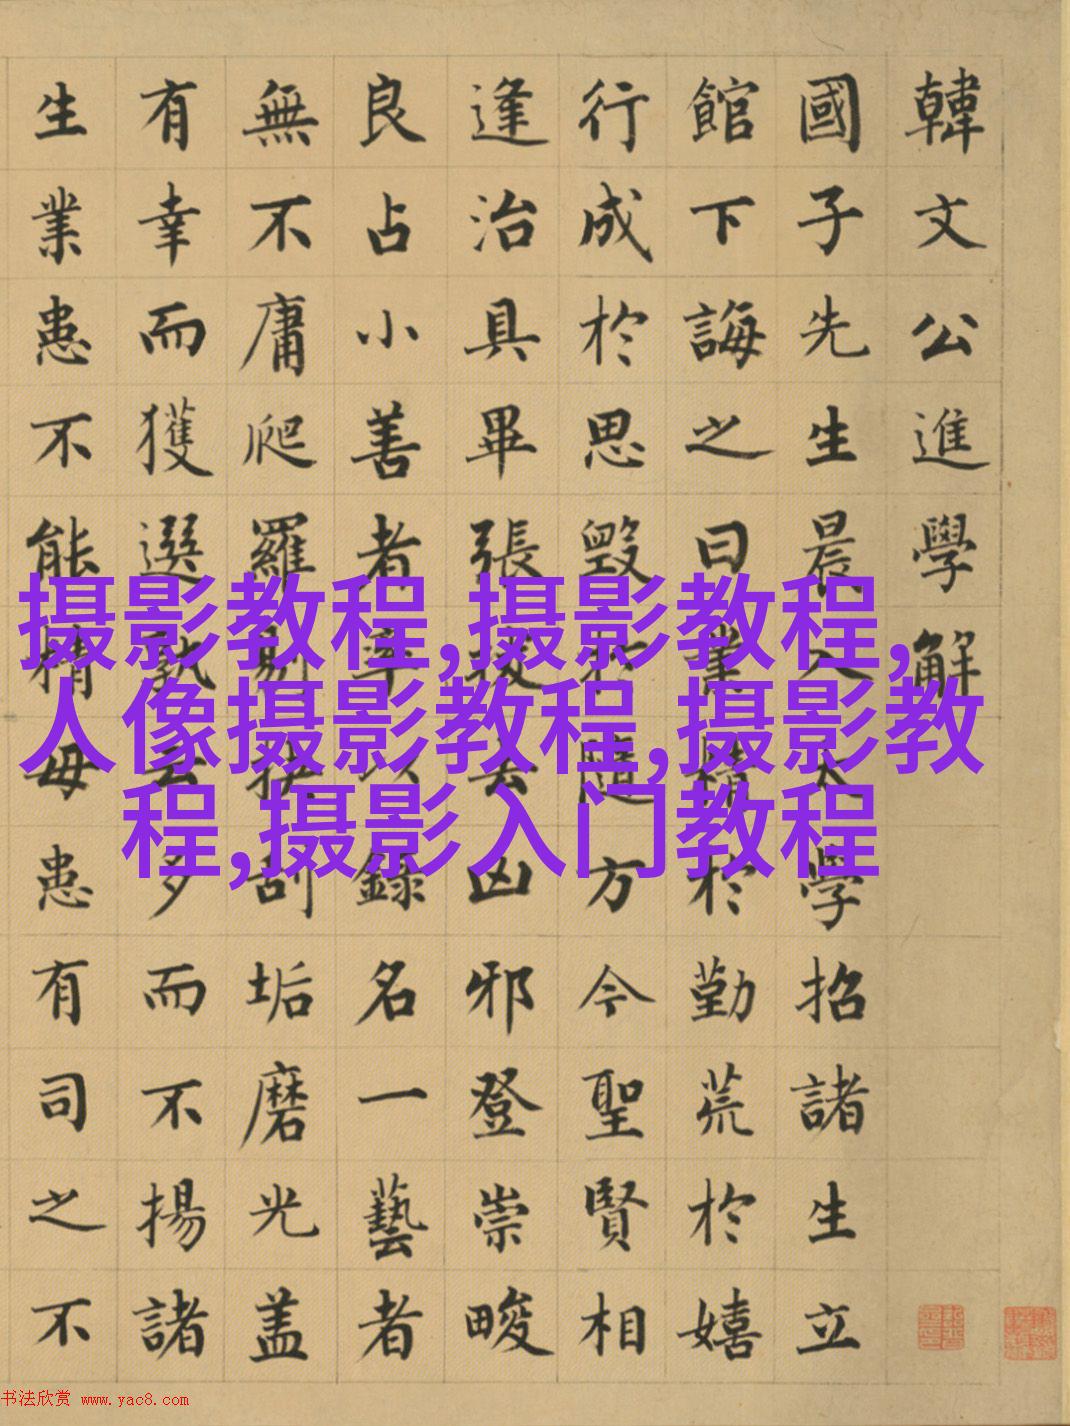 韓文公進學解
國子先生晨入太學招諸生立
館下誨之曰業精於勤荒於嬉
行成於思毀於隨方今聖賢相
逢治具畢張拔去凶邪登崇畯
良占小善者率以錄名一藝者
無不庸爬羅剔抉刮垢磨光盖
有幸而獲選孰云多而不揚諸
生業患不能精毋患有司之不
摄影教程,摄影教程,
人像摄影教程,摄影教
程,摄影入门教程
书法欣赏 www.yac8.com